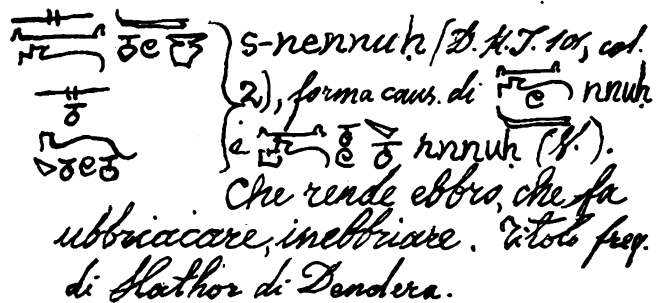 s-nennuḥ (D. H. J. 101, col.
2), forma caus. di nnuḥ
e nnnuḥ (V.).
Che rende ebbro, che fa
ubbriacare, inebbriare. Titolo freq.
di Hathor di Dendera.